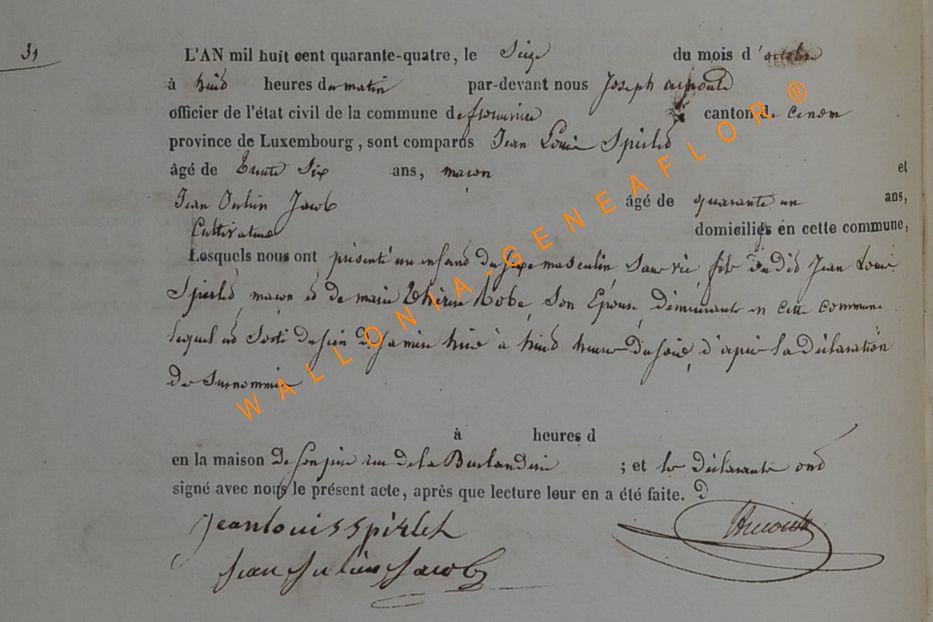 31
L'AN mil huit cent quarante-quatre, le Seize du mois d'octobre
à huit heures du matin par-devant nous Joseph arnould
officier de l'état civil de la commune de florenville canton de
province de Luxembourg, sont comparus Jean Louis Spirlet
âgé de trente Six ans, maçon et
Jean Julien Jacob âgé de quarante un ans,
Cultivateur domiciliés en cette commune,
Lesquels nous ont présenté un enfant du sexe masculin Sans vie, fils dudit Jean Louis
Spirlet maçon et de marie thérèse Robe, Son Epouse, demeurants en cette commune
lequel est Sorti du sein de Sa mère hier à huit heures du Soir, d'après la déclaration
des Surnommés
à heures d
en la maison de Son père rue de la ; et les déclarants ont
signé avec nous le présent acte, après que lecture leur en a été faite.
Jean louis Spirlet
Jean Julien Jacob
WALLONIA-GENEAFLOR®